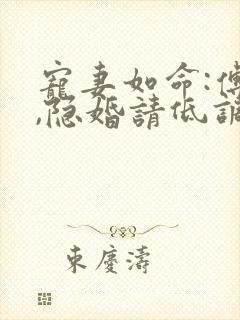 寵妻如命:傅
,隐婚請低調
東慶濤